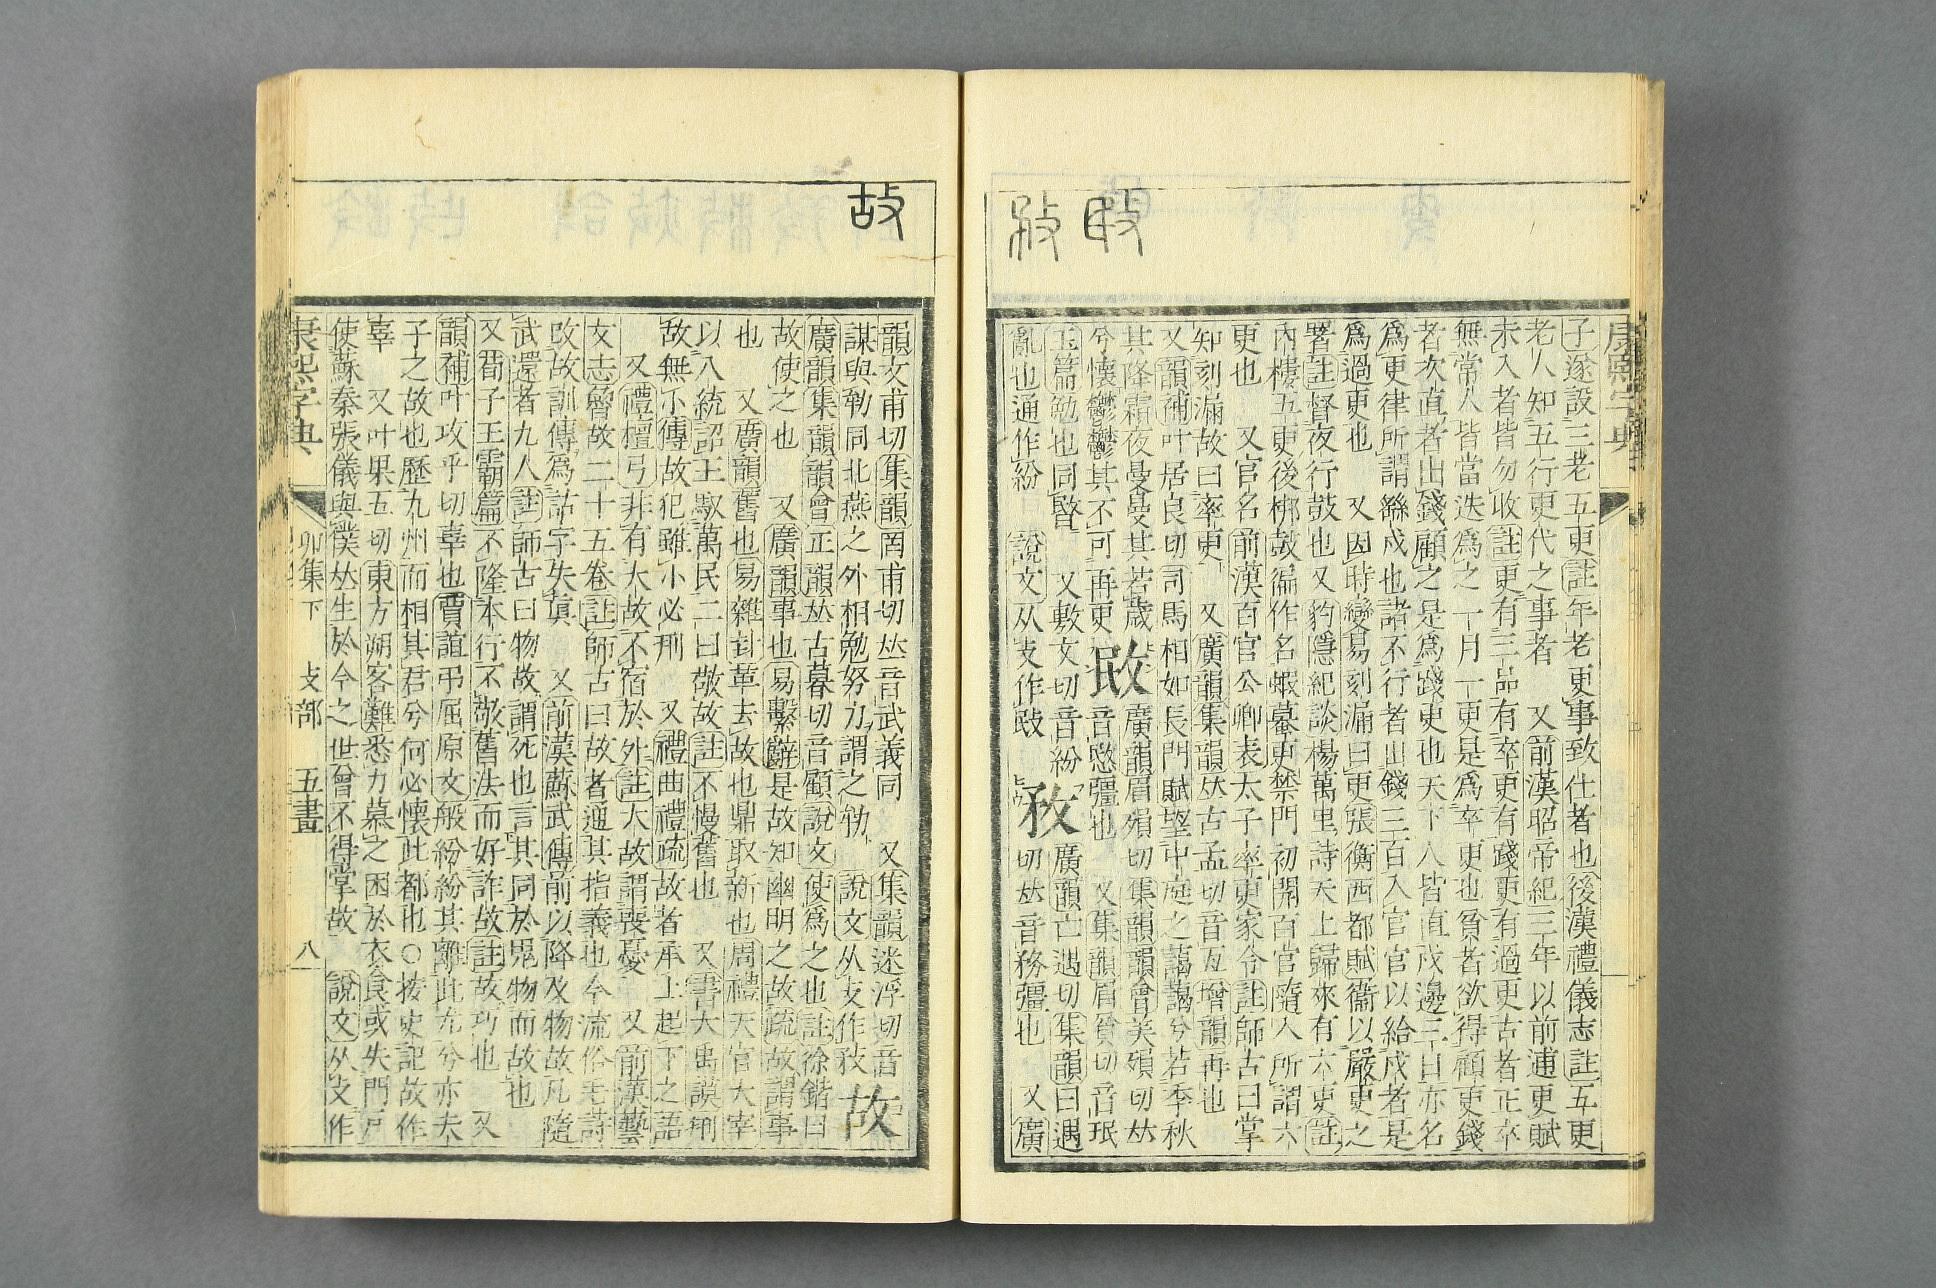 康熙字典
敃 敄
子遂設三老五更註年老更事致仕者也後漢禮儀志註五更
老人知五行更代之事者 又前漢昭帝紀三年以前逋更賦
未入者皆勿收註更有三品有卒更有踐更有過更古者正卒
無常人皆當迭爲之一月一更是爲卒更也貧者欲得顧更錢
者次直者出錢顧之是爲踐更也天下人皆直戍邊三日亦名
爲更律所謂繇戍也諸不行者出錢三百入官官以給戍者是
爲過更也 又因時變易刻漏曰更張衡西都賦衞以嚴更之
署註督夜行鼓也又豹隱紀談楊萬里詩天上歸來有六更註
內樓五更後梆鼓徧作名蝦蟇更禁門初開百官隨入所謂六
更也 又官名前漢百官公卿表太子率更家令註師古曰掌
知刻漏故曰率更 又廣韻集韻𠀤古孟切音亙增韻再也
又韻補叶居良切司馬相如長門賦望中庭之藹藹兮若季秋
其降霜夜曼曼其若歲
兮懷鬱鬱其不可再更 敃 廣韻眉殞切集韻韻會美殞切𠀤
音愍彊也 又集韻眉貧切音珉
玉篇勉也同暋 又敷文切音紛
亂也通作紛 說文从攴作敃 敄 廣韻亡遇切集韻曰遇
切𠀤音務彊也 又廣
故
韻文甫切集韻罔甫切𠀤音武義同 又集韻迷浮切音
謀與勄同北燕之外相勉努力謂之勄 說文从攴作敄 故
廣韻集韻韻會正韻𠀤古暮切音顧說文使爲之也註徐鍇曰
故使之也 又廣韻事也易繫辭是故知幽明之故疏故謂事
也 又廣韻舊也易雜卦革去故也鼎取新也周禮天官大宰
以八統詔王馭萬民二曰敬故註不慢舊也 又書大禹謨刑
故無小傳故犯雖小必刑 又禮曲禮疏故者承上起下之語
又禮檀弓非有大故不宿於外註大故謂喪憂 又前漢藝
文志魯故二十五卷註師古曰故者通其指義也今流俗毛詩
改故訓傳爲詁字失眞 又前漢蘇武傳前以降及物故凡隨
武還者九人註師古曰物故謂死也言其同於鬼物而故也
又荀子王霸篇不隆本行不敬舊法而好詐故註故巧也 又
韻補叶攻乎切辜也賈誼弔屈原文般紛紛其離此尤兮亦夫
子之故也歷九州而相其君兮何必懷此都也○按史記故作
辜 又叶果五切東方朔客難悉力慕之困於衣食或失門戸
使蘇秦張儀與僕𠀤生於今之世曾不得掌故 說文从攴作
康熙字典 卯集下 攴部 五畫 八